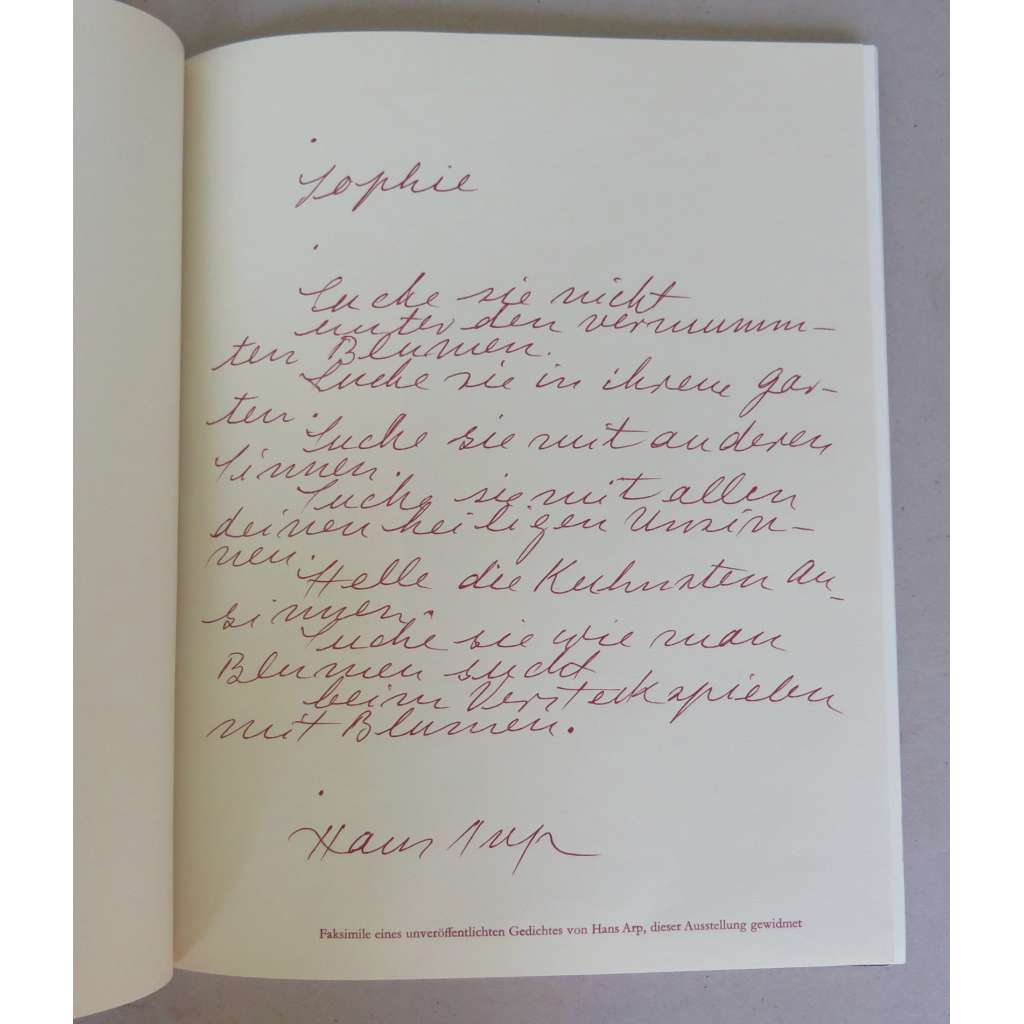 Sophie
Suche sie nicht
unter den vermumm-
ten Blumen.
Suche sie in ihrem Gar-
ten.
Suche sie mit anderen
Sinnen.
Suche sie mit allen
deinen heiligen Unsin-
nen.
Helle die Kuhnsten An-
sinnen.
Suche sie wie man
Blumen sucht
beim Versteckspielen
mit Blumen.
Hans Arp
Faksimile eines unveröffentlichten Gedichtes von Hans Arp, dieser Ausstellung gewidmet